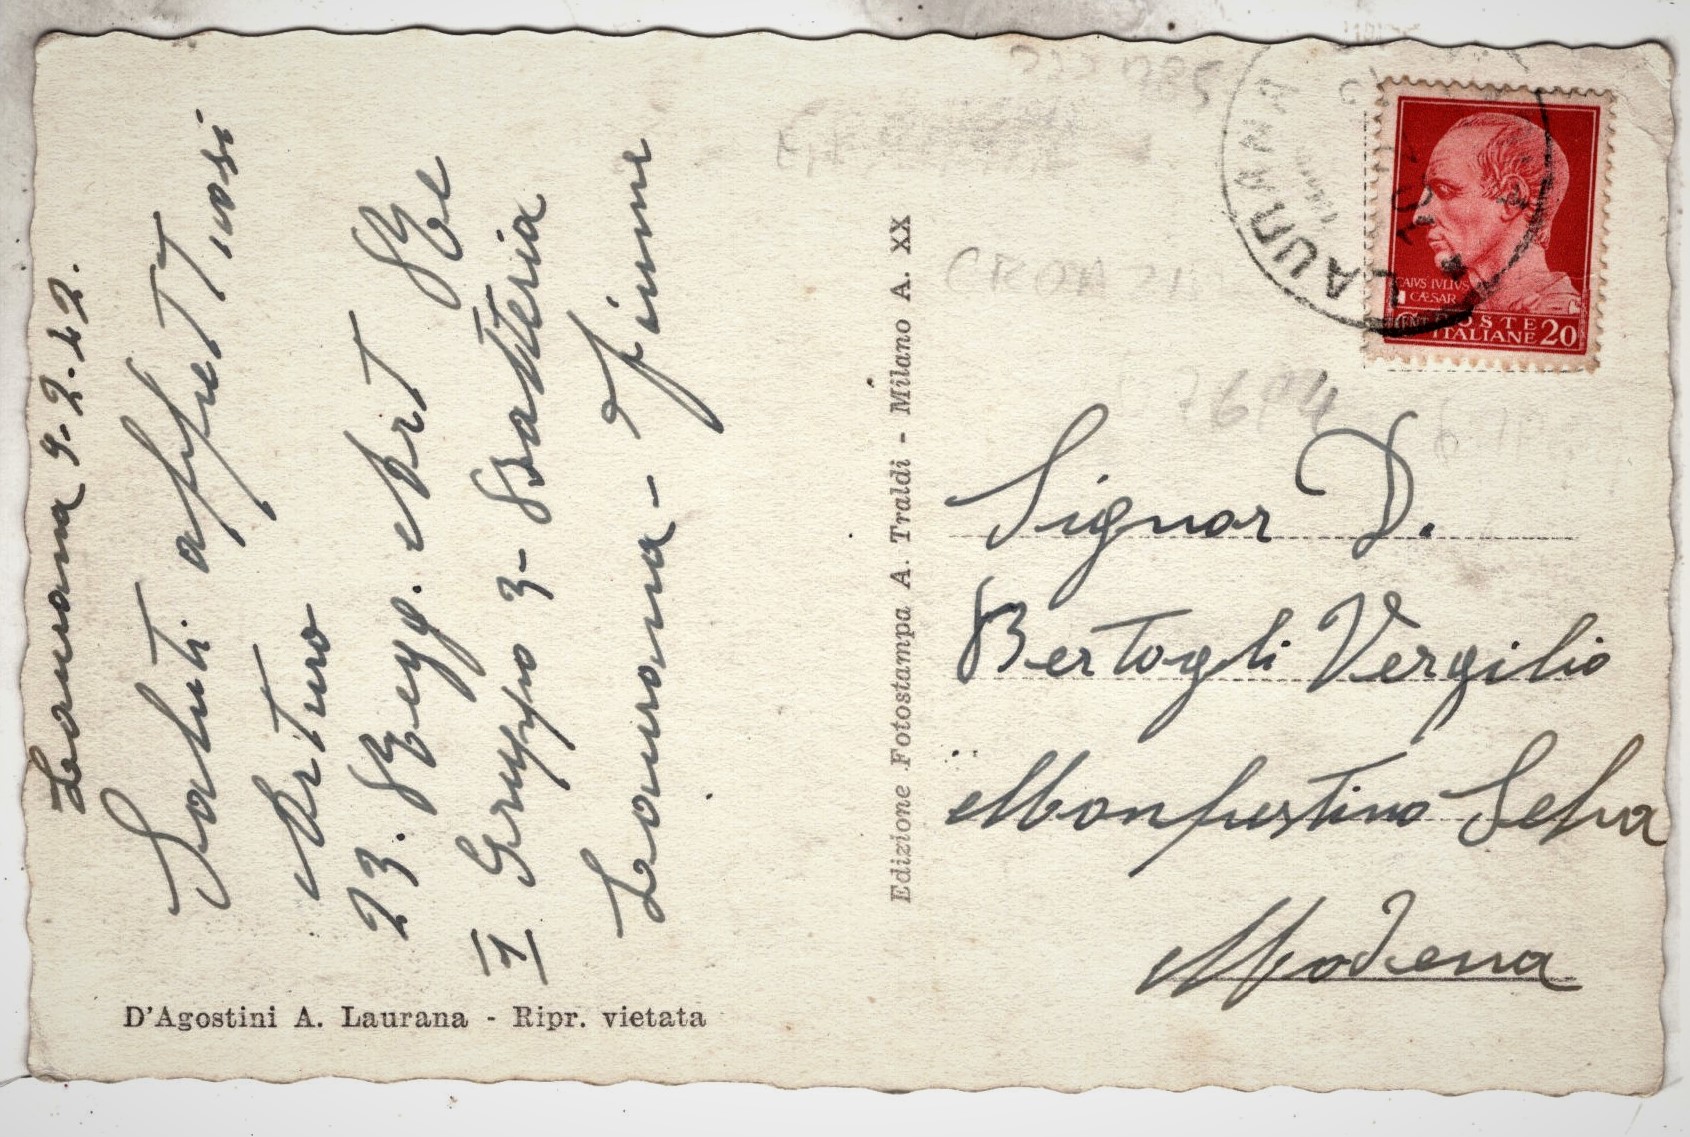 Laurana 9.2.42.
Saluti affettuosi
Arturo
23. Regg. Art Re
I Gruppo 3- Batteria
Laurana - Fiume
D'Agostini A. Laurana - Ripr. vietata
Edizione Fotostampa A. Traldi - Milano A. XX
LAURANA
CAIVS IVLIVS
CÆSAR
POSTE
ITALIANE 20
CROAZIA
Signor D.
Bertogli Vergilio
Monfestino Selva
Modena